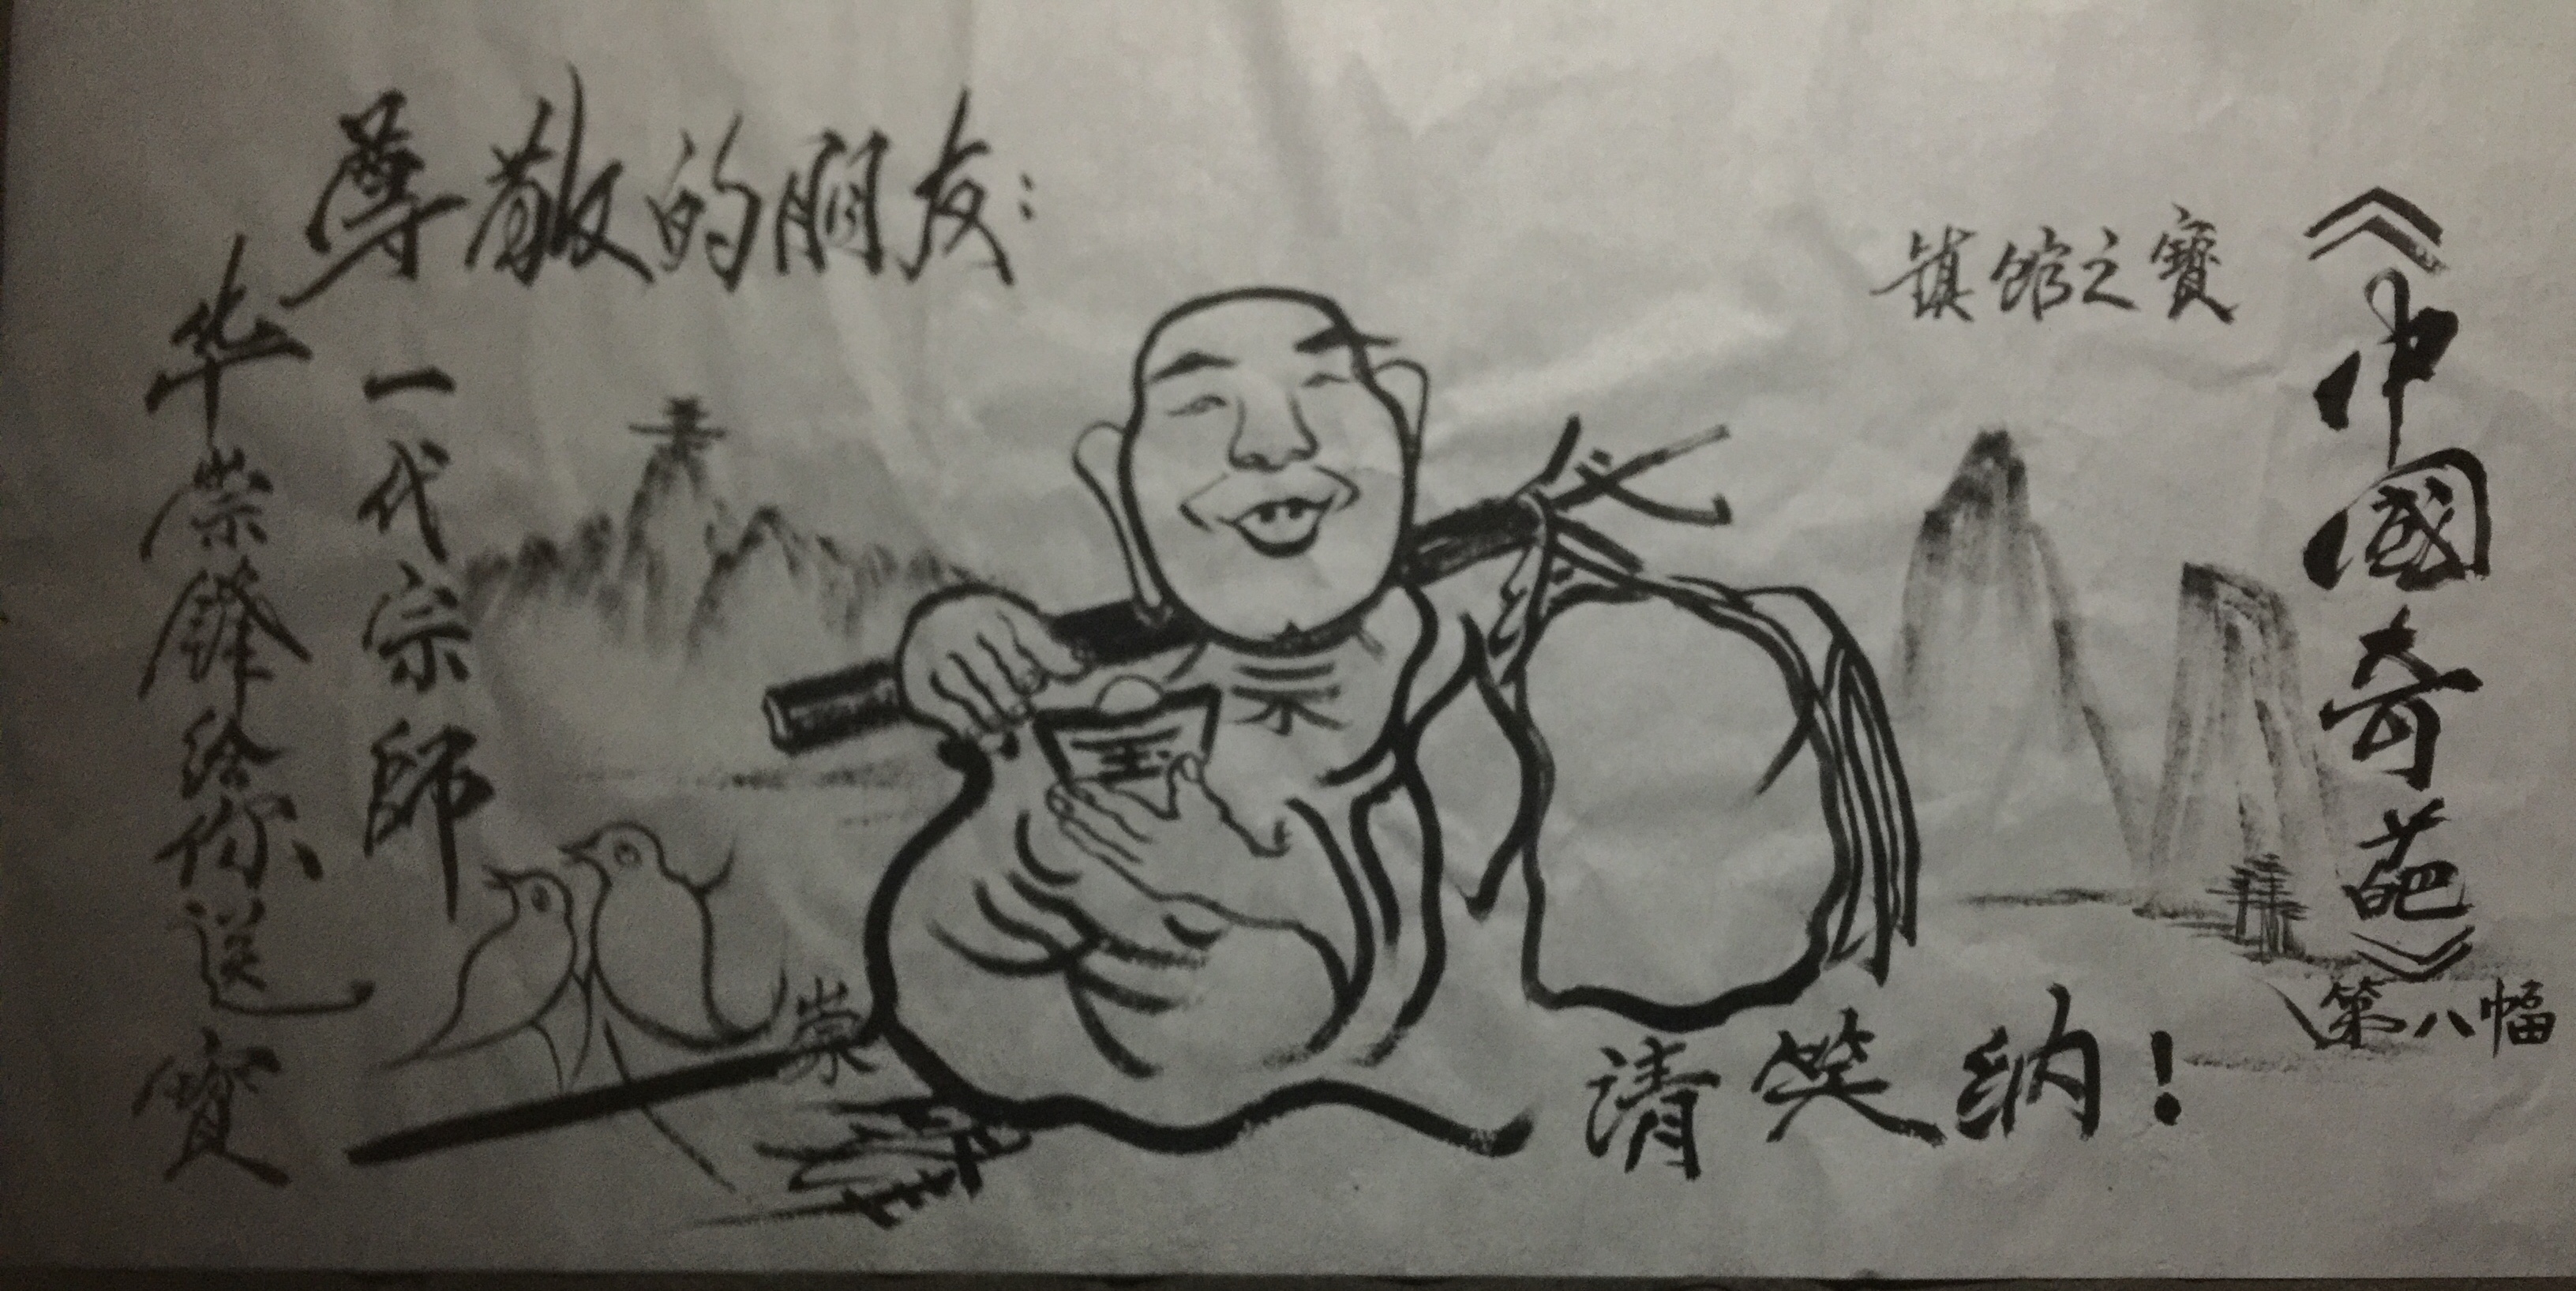 《中國奇葩》
第八幅
镇馆之寳
尊敬的朋友：
一代宗師
华崇鋒给你送寳
崇
请笑纳！